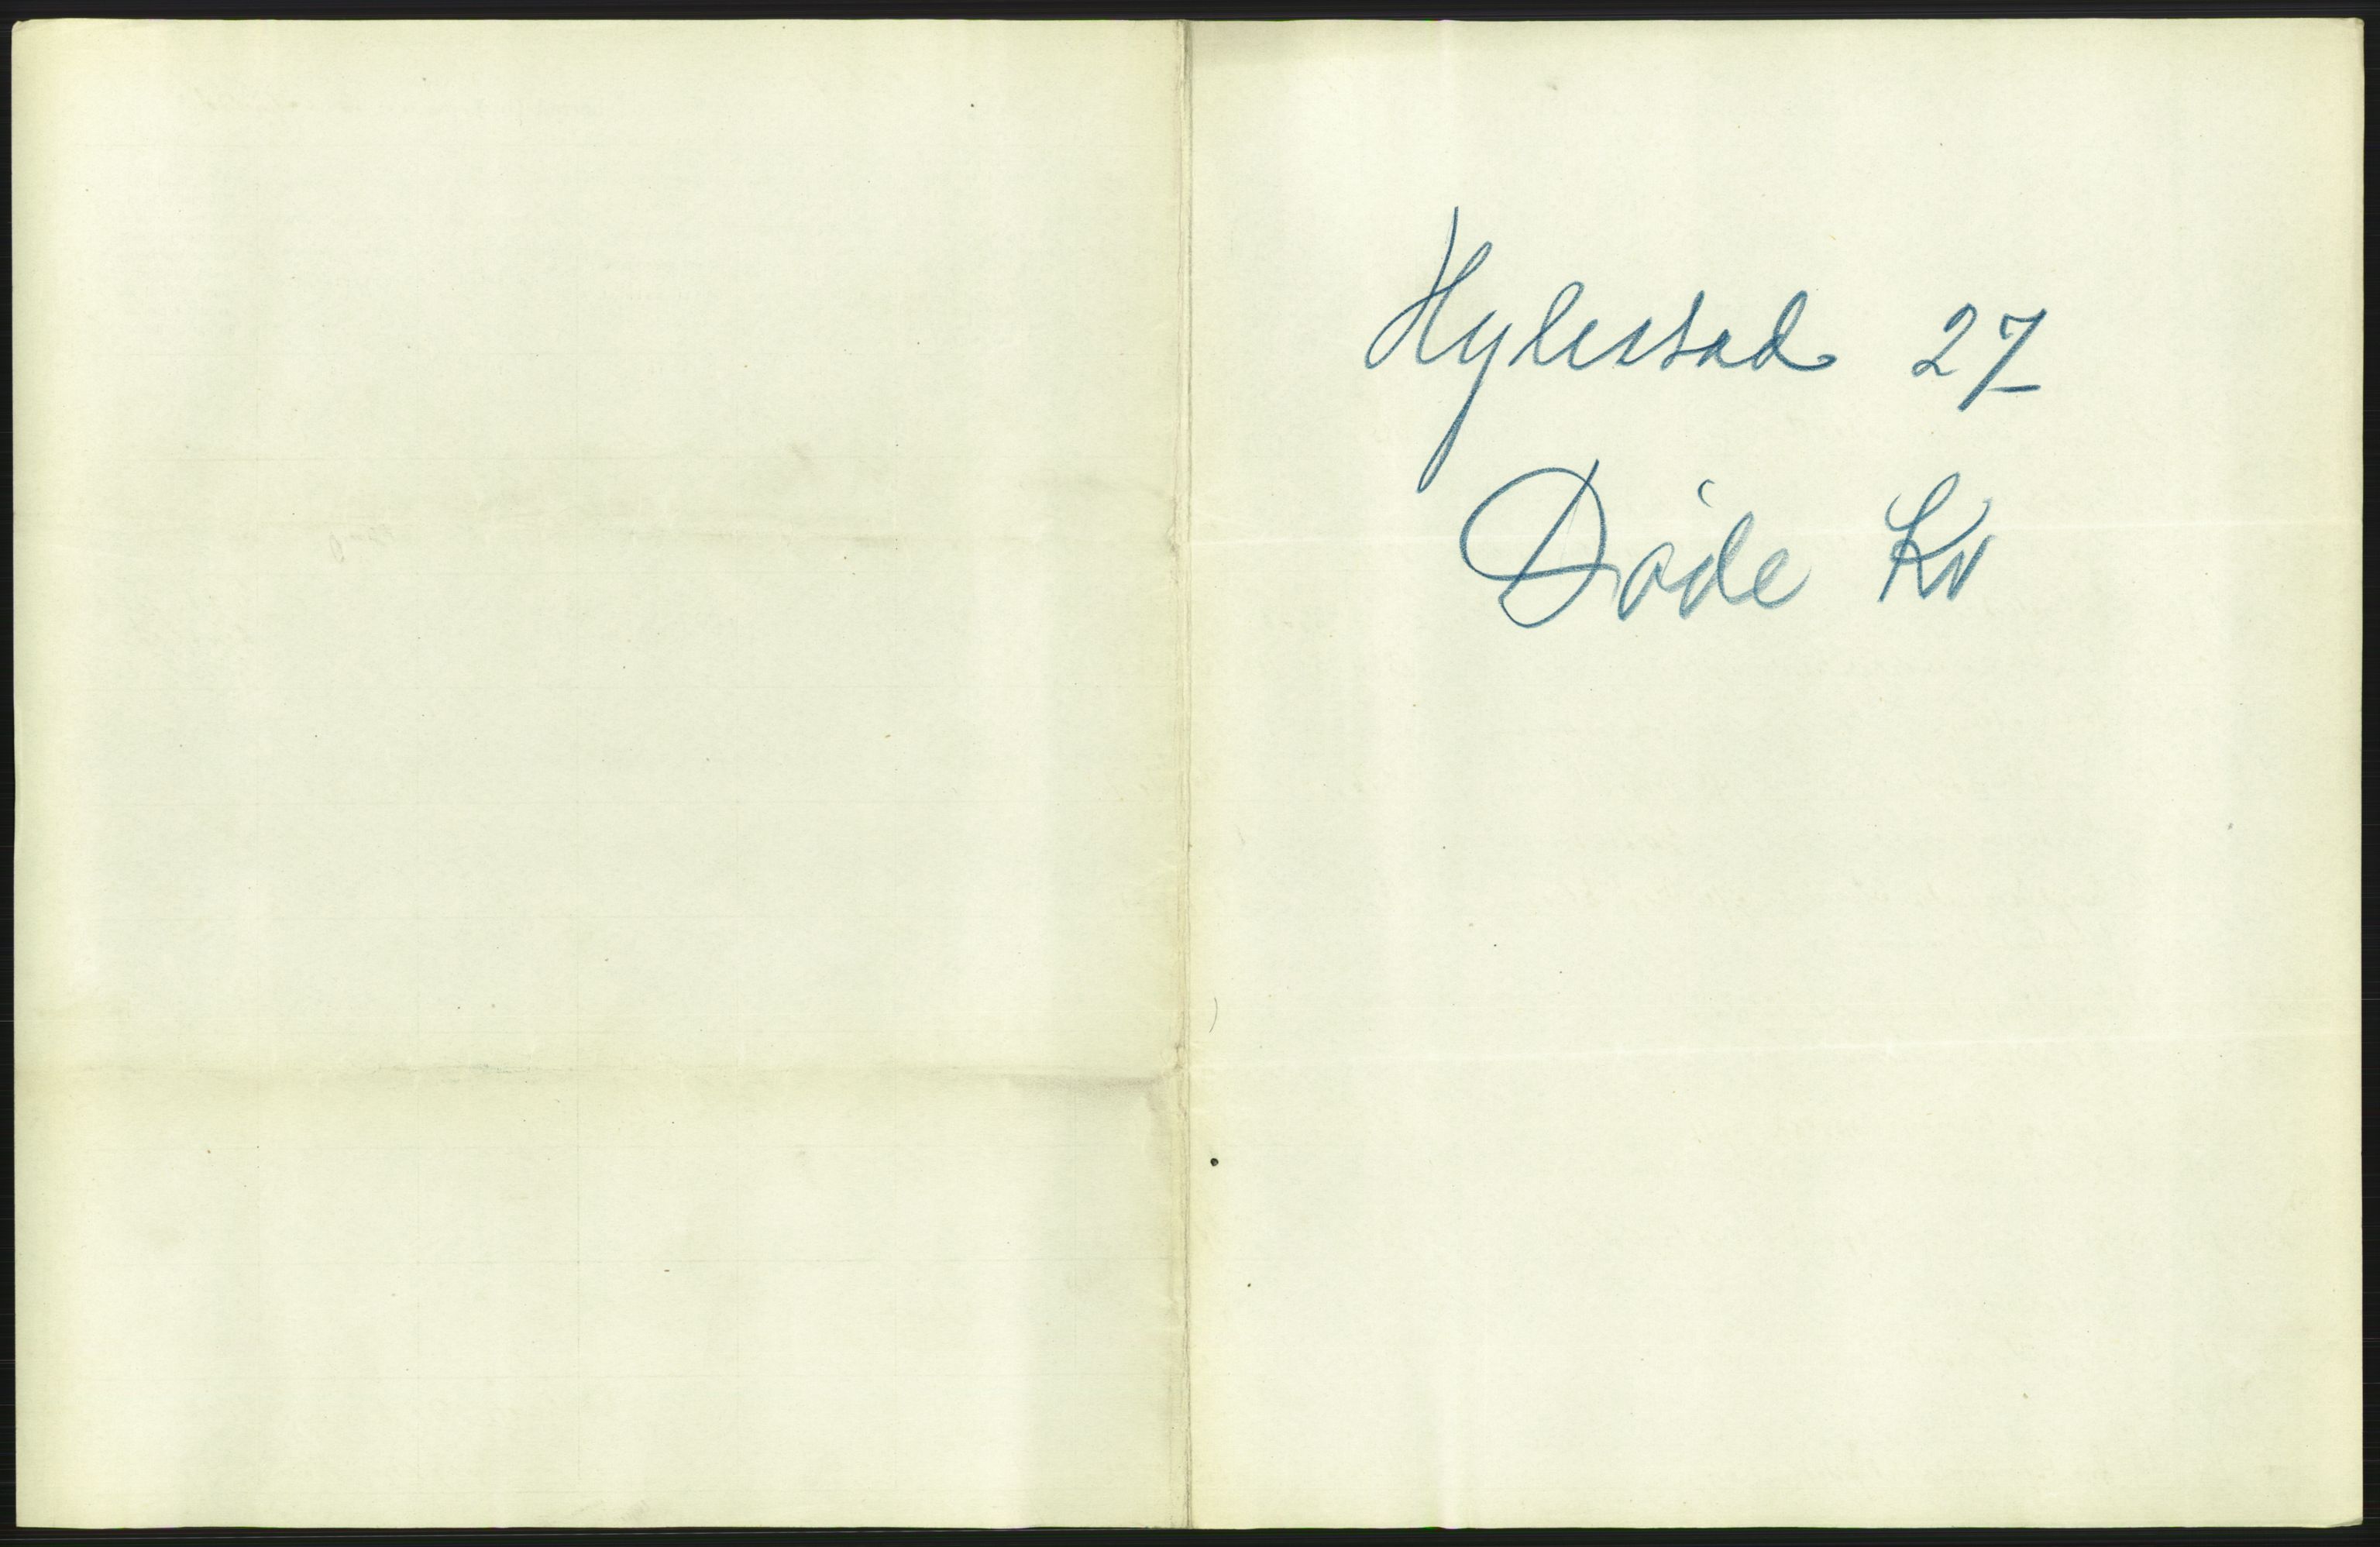 Hylestad 27
Døde Kv